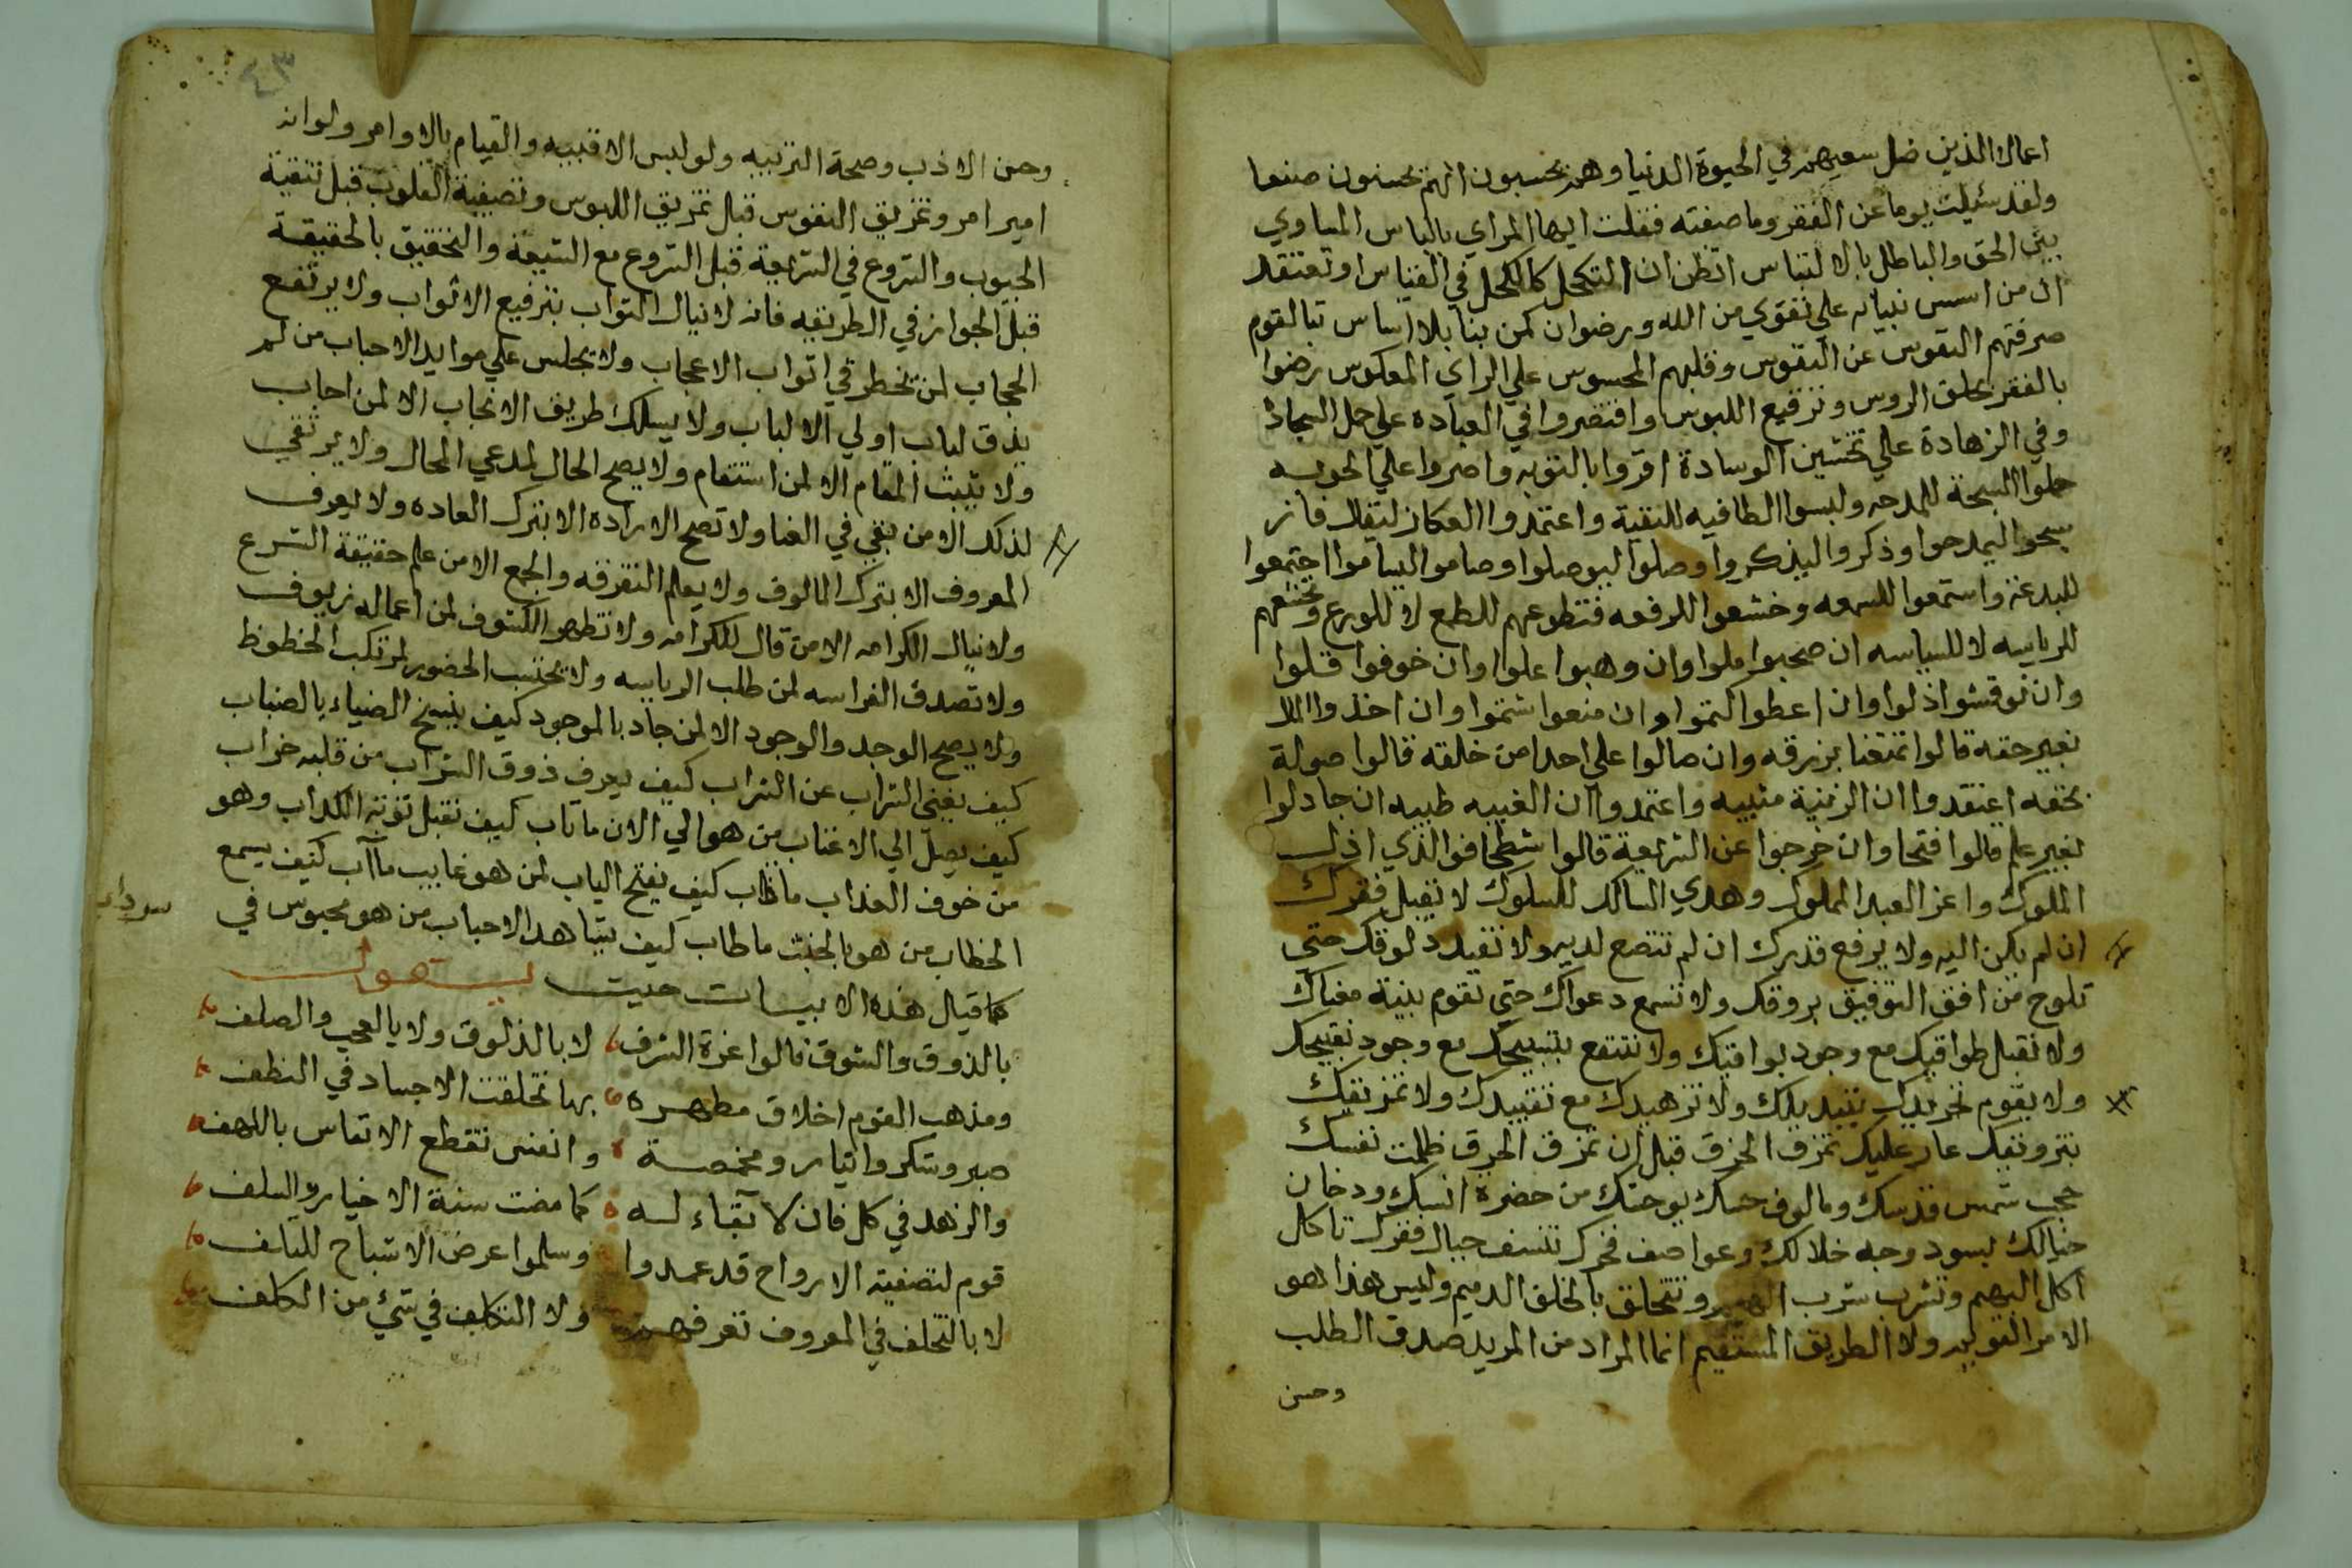 اعمالا الذين ضل سعيهم في الحيوة الدنيا وهم يحسبون انهم يحسنون صنعا
ولقد سئيلت يوما عن الفقر وما صفته فقلت ايها المراي بالباس المساوي
بين الحق والباطل بالالتباس اتظن ان التكحل كالكحل في القياس او تعتقد
ان من اسس بنيانه علي تقوي من الله ورضوان كمن بنا بلا اساس تبا لقوم
صرفتهم النقوس عن النفوس وقلبهم المحسوس علي الراي المعكوس رضوا
بالفقر بحلق الروس وترقيع اللبوس واقتصروا في العباده علي حمل السجادة
وفي الزهادة علي تخشين الوسادة اقروا بالتوبه واصروا علي الحوبه
حملوا السبحة للمدحه ولبسوا الطاقيه للتقية واعتمدوا العكاز ليقال فاز
سبحوا ليمدحوا وذكروا ليذكروا وصلوا ليوصلوا وصاموا ليساموا اجتمعوا
للبدعة واستمعوا للسمعه وخشعوا للرفعه فتطوعهم للطمع لا للورع وتخشعهم
للرياسه لا للسياسه ان صحبوا ملوا وان وهبوا غلوا وان خوفوا قلوا
وان نوقشوا ذلوا وان اعطوا اتموا وان منعوا شتموا وان اخذوا المال
بغير حقه قالوا تمتعنا برزقه وان صالوا علي احد من خلقه قالوا صولة
بحقه اعتقدوا ان الزنية مثيبه واعتمدوا ان الغيبه طيبه ان جادلوا
بغير علم قالوا فتحا وان خرجوا عن الشريعة قالوا شطحا فوالذي اذل
الملوك واعز العبد المملوك وهدي السالك للسلوك لا تقبل فقرك
ان لم يكن اليه ولا يرفع قدرك ان لم تتضع لديه ولا تفيد دلوقك حتي
تلوح من افق التوفيق بروقك ولا تسمع دعواك حتي تقوم بنية معناك
ولا تقبل طواقيك مع وجود بواقيك ولا تنتفع بتسبيحك مع وجود تقبيحك
ولا يقوم تجريدك بتبديلك ولا تزهيدك مع تقييدك ولا تمزيقك
بتزويقك عار عليك تمزق الخرق قبل ان تمزق الحرق ظلمت نفسك
حجب شمس قدسك ومالوف حسك يوحشك من حضرة انسك ودخان
خيالك يسود وجه خلالك وعواصف فخرك تنسف جبال فقرك تاكل
اكل البهم وتشرب شرب الهيم وتتخلق بالخلق الدميم وليس هذا هو
الامر القويم ولا الطريق المستقيم انما المراد من المريد صدق الطلب
وحسن
٤٣
وحسن الادب وصحة التربيه ولو لبس الاقبيه والقيام بالاوامر ولو انه
امير امر وتمزيق النفوس قبل تمزيق اللبوس وتصفية القلوب قبل تنقية
الجيوب والشروع في الشريعة قبل الشروع مع الشيعة والتحقيق بالحقيقة
قبل الجواز في الطريقه فانه لا ينال الثواب بترقيع الاثواب ولا يرتفع
الحجاب لمن تخطر في اثواب الاعجاب ولا يجلس علي موايد الاحباب من لم
يذق لباب اولي الالباب ولا يسلك طريق الانجاب الا لمن اجاب
ولا يثبت المقام الا لمن استقام ولا يصح الحال لمدعي المحال ولا يرتقي
لذلك الا من بقي في الفنا ولا تصح الارادة الا بترك العاده ولا يعرف
المعروف الا بترك المالوف ولا يعلم التفرقه والجمع الا من علم حقيقة الشرع
ولا ينال الكرامه الا من قال للكرامه ولا تظهر الكشوف لمن اعماله زيوف
ولا تصدق الفراسه لمن طلب الرياسه ولا يحتسب الحضور لمرتكب الحظوظ
ولا يصح الوجد والوجود الا لمن جاد بالموجود كيف ينسخ الضياء بالضباب
كيف يغني التراب عن الشراب كيف يعرف ذوق الشراب من قلبه خراب
كيف يصل الي الاعتاب من هو الي الان ما تاب كيف تقبل توبة الكداب وهو
من خوف العذاب ما ذاب كيف يفتح الباب لمن هو غايب ما آب كيف يسمع
الخطاب من هو بالخبث ما طاب كيف يشاهد الاحباب من هو محبوس في
سرداب
كما قيل هذه الابيات حيت يقول
بالذوق والشوق نالوا عزة الشرف لا بالدلوق ولا بالعجب والصلف
ومذهب القوم اخلاق مطهرة بها تخلقت الاجساد في النطف
صبر وشكر وايثار ومخمصة وانفس تقطع الانفاس باللهف
والزهد في كل فان لا بقاء له كما مضت سنة الاخيار والسلف
قوم لتصفية الارواح قد عمدوا وسلموا عرض الاشباح للتلف
لا بالتخلف في المعروف تعرفهم ولا التكلف في شئ من الكلف